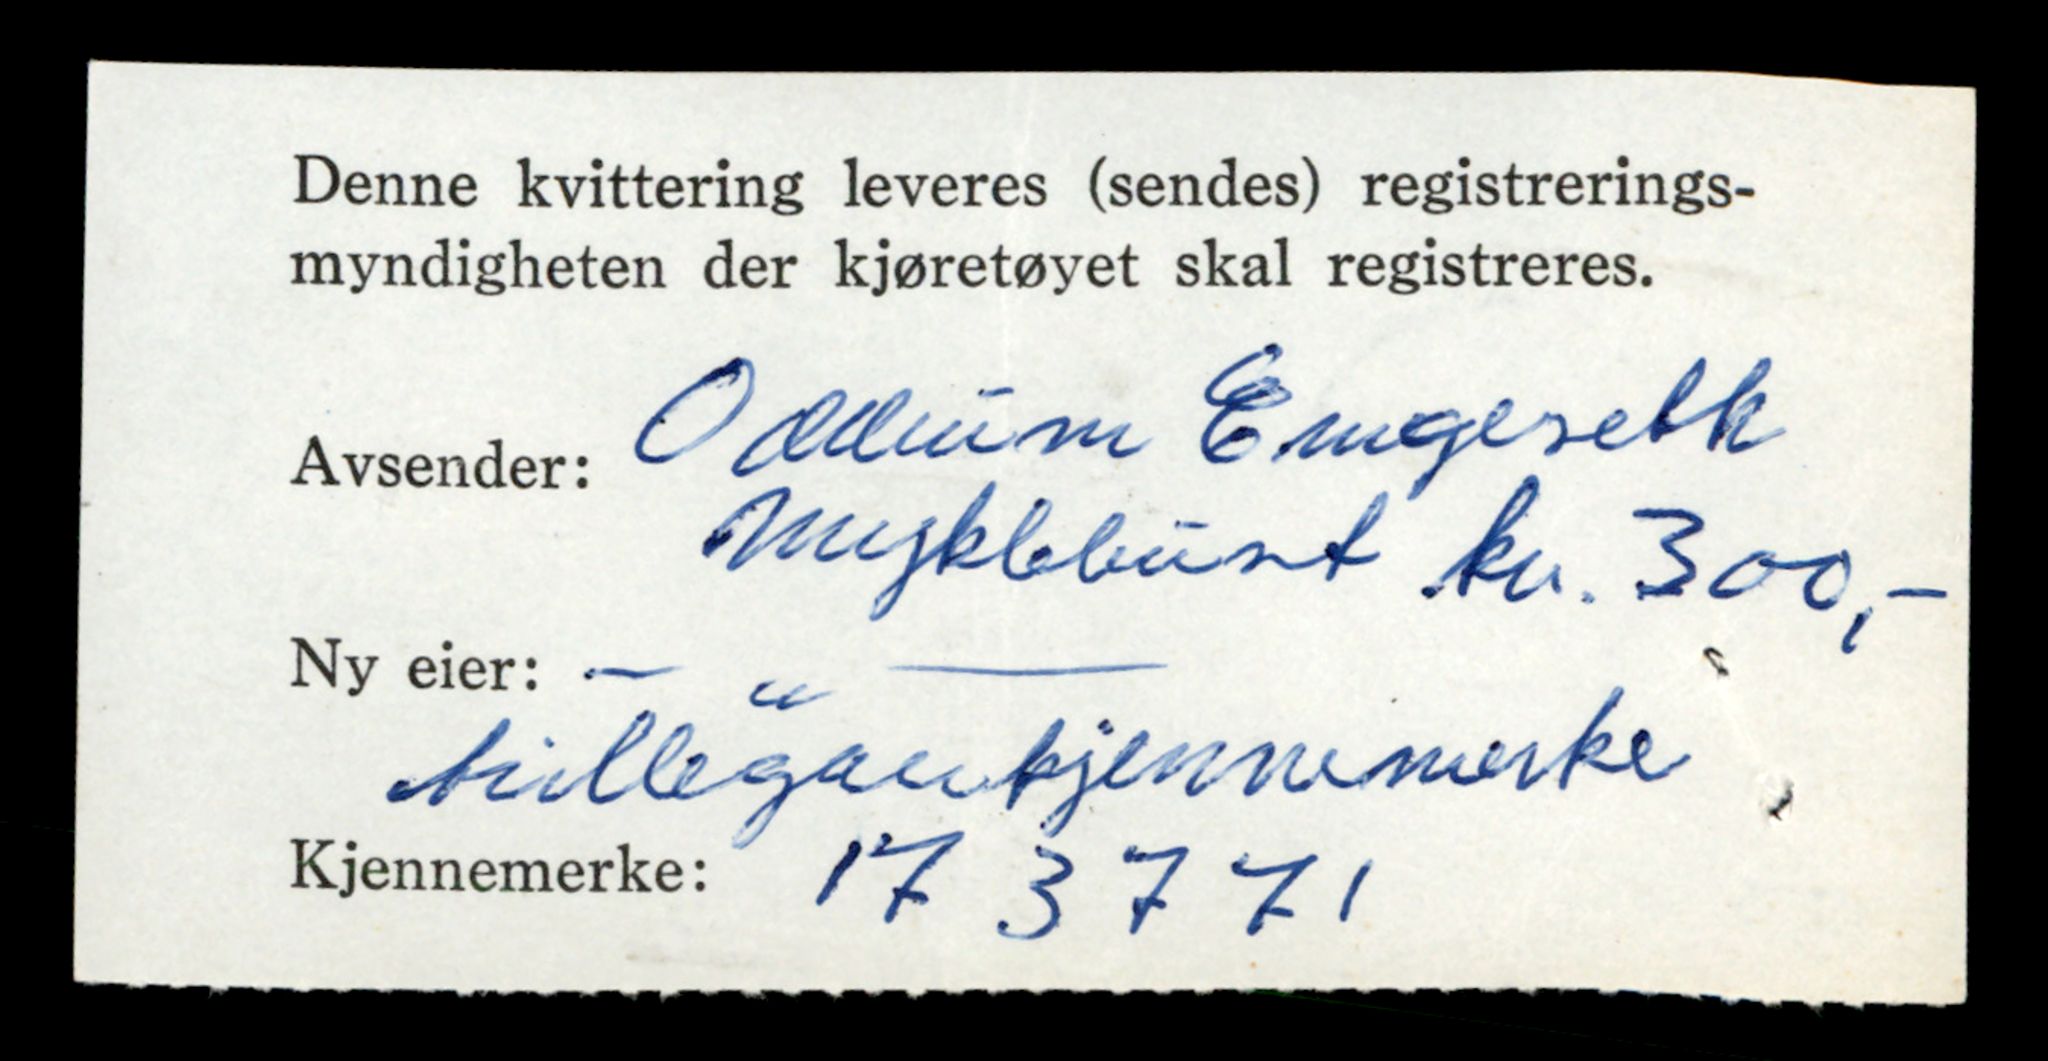 Denne kvittering leveres (sendes) registrerings-
myndigheten der kjøretøyet skal registreres.
Avsender: Oddrun Engeseth
Myklebust kr. 300,-
Ny eier: — " —
kjennemerke
Kjennemerke: 173771